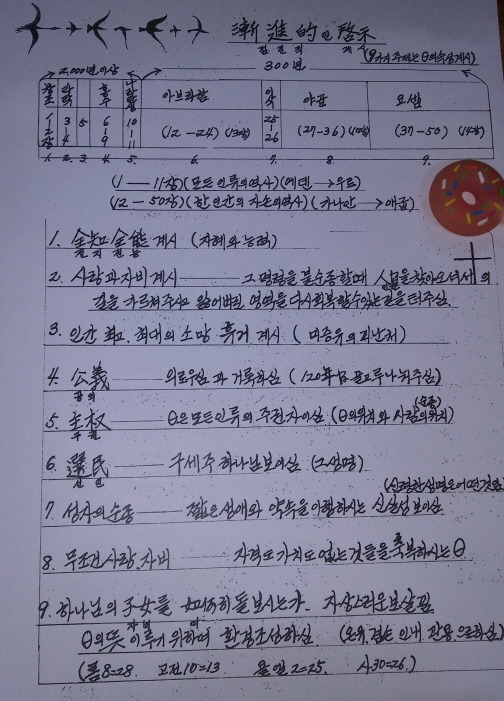 漸進的인 啓示
점진적 계시
(9가지 주제는 θ의 속성계시)
2,000년이상
300년
창조 타락 홍수 바벨탑 아브라함 이삭 야곱 요셉
1-2장 3-4 5 6-9 10-11 (12-24) (13장) 25-26 (27-36) (10장) (37-50) (14장)
1. 2. 3 4. 5. 6. 7. 8. 9.
(1 — 11장) (모든 인류의 역사) (에덴 → 우르)
(12 — 50장) (한 인간의 자손의 역사) (가나안 → 애굽)
1. 全知全能 계시 (지혜와 능력)
전지전능
2. 사랑과 자비 계시 — 그 명령을 불순종할때 人間을 찾아오셔서 의
길을 가르쳐주시고 잃어버린 영역을 다시 회복할수있는 길을 터주심.
3. 인간 최고. 최대의 소망 휴거 계시 (
4. 公義 — 의로우심과 거룩하심 (120年
공의
5. 主权 — θ은 모든 인류의 주권자이심 (θ의위치와 사람의위치)
주권
(순종)
6. 選民 — 구세주 하나님 보이심. (그 설명)
선민
(신령한 설명은 어떤것요
7. 성자의 순종 — 짧은 생애와 약속을 이행하시는 신실성 보이심
8. 무조건 사랑. 자비 — 자격도 가치도 없는 것들을 축복하시는 θ
9. 하나님의 子女를 如何히 돌보시는가. 자상스러운 보살핌
자녀 여
θ의 뜻 이루기 위하여 환경조성하심. (온유, 겸손 인내 관용으로하심)
(롬8=28. 고전10=13. 욜엘2=25. 사30=26.)